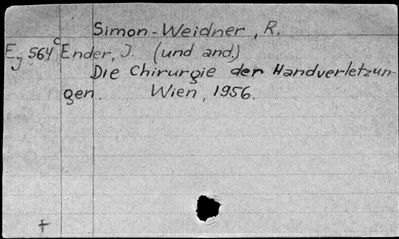 Simon-Weidner, R.
Eg 564c Ender, J. (und and.)
Die Chirurgie der Handverletzun-
gen. Wien, 1956.
+